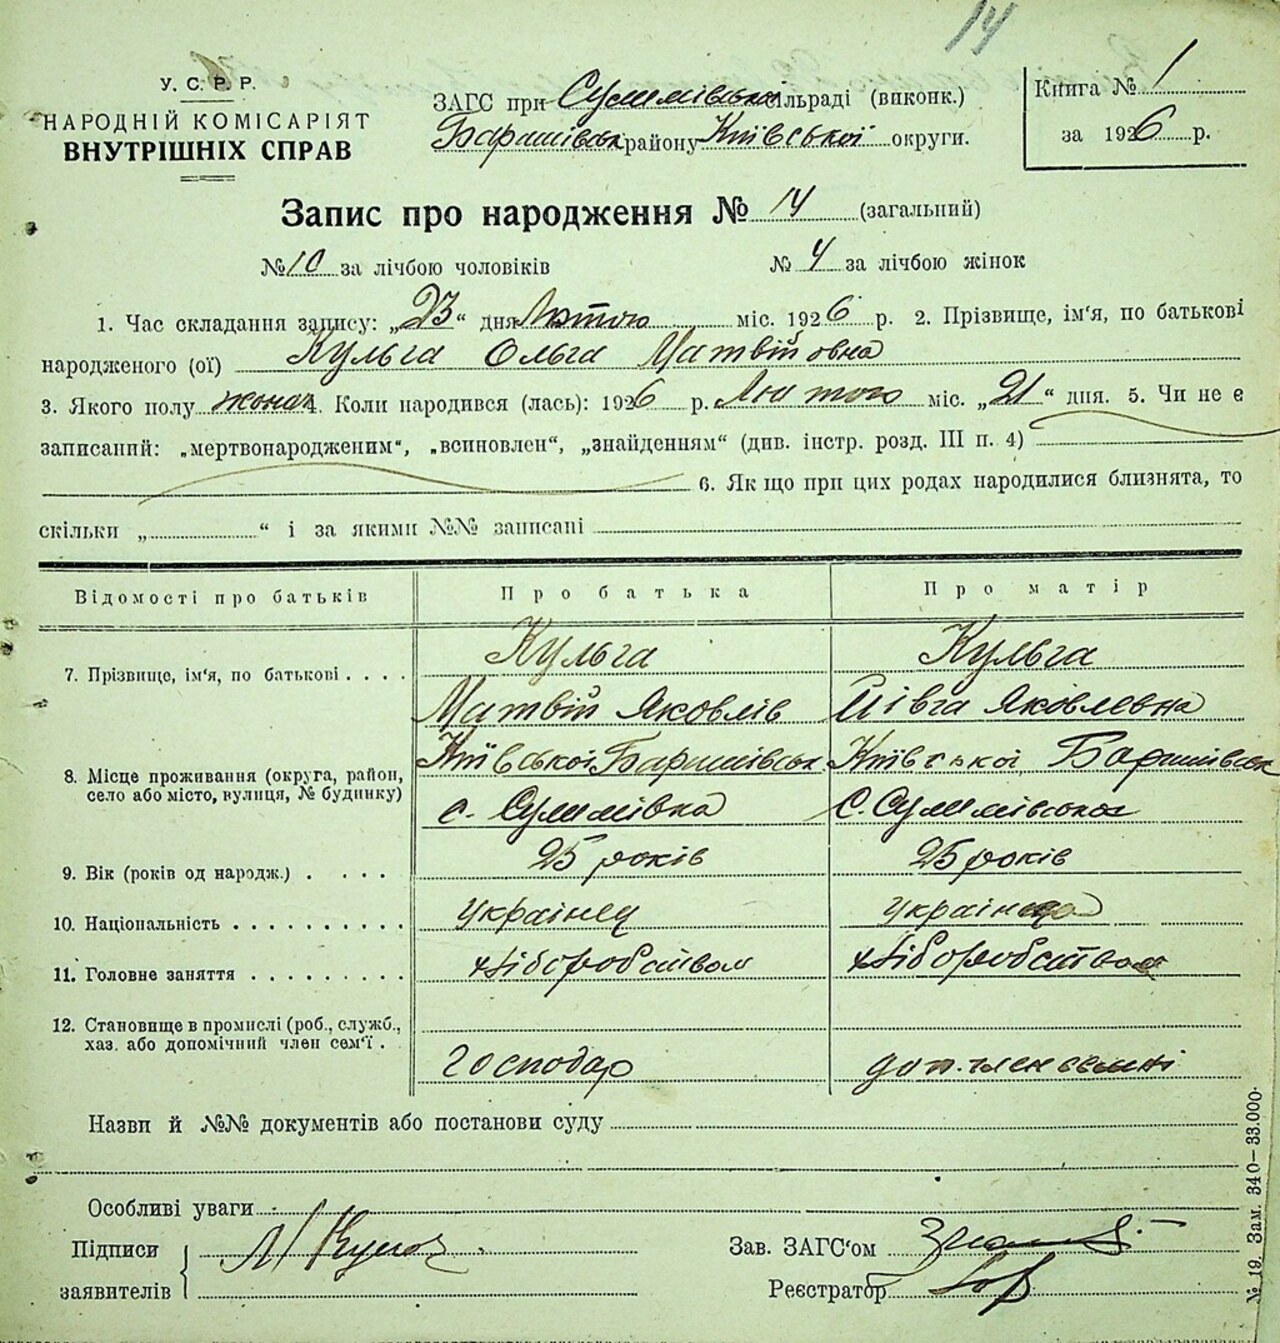 14
У. С. Р. Р.
НАРОДНІЙ КОМІСАРІЯТ
ВНУТРІШНІХ СПРАВ
ЗАГС при Сулимівській сільраді (виконк.)
Баришівськ району Київської округи.
Книга № 1
за 1926 р.
Запис про народження № 14 (загальний)
№ 10 за лічбою чоловіків № 4 за лічбою жінок
1. Час складання запису: „23“ дня Лютого міс. 1926 р. 2. Прізвище, ім'я, по батькові
народженого (ої) Кульга Ольга Матвійовна
3. Якого полу жоноч 4. Коли народився (лась): 1926 р. Лютого міс. „21“ дня. 5. Чи не є
записаний: „мертвонародженим“, „всиновлен“, „знайденням“ (див. інстр. розд. III п. 4)
6. Як що при цих родах народилися близнята, то
скільки „ “ і за якими №№ записані
Відомості про батьків Про батька Про матір
7. Прізвище, ім'я, по батькові Кульга Кульга
Матвій Яковлів Йівга Яковлевна
8. Місце проживання (округа, район, Київської Баришівськ Київської Баришівськ
село або місто, вулиця, № будинку) с. Сулимівка С. Сулимівська
9. Вік (років од народж.) 25 років 25 років
10. Національність українец українца
11. Головне заняття хліборобством хліборобством
12. Становище в промислі (роб., служб.,
хаз. або допомічний член сем'ї Господар доп. член семні
Назви й №№ документів або постанови суду
Особливі уваги
Підписи
заявителів
Зав. ЗАГС'ом
Реєстратор
№ 19. Зам. 340—33.000.